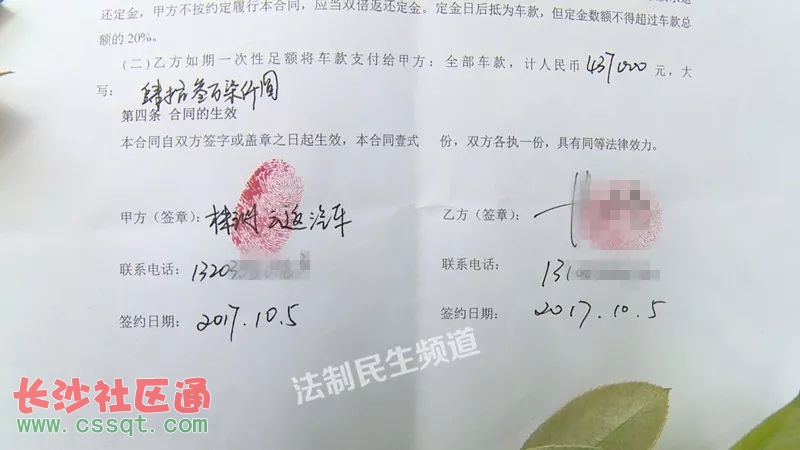 还定金，甲方不按约定履行本合同，应当双倍返还定金。定金日后抵为车款，但定金数额不得超过车款总
额的 20%。
（二）乙方如期一次性足额将车款支付给甲方：全部车款，计人民币 437000 元，大
写：肆拾叁万柒仟圆
第四条 合同的生效
本合同自双方签字或盖章之日起生效，本合同壹式 份，双方各执一份，具有同等法律效力。
甲方（签章）：株洲 云返汽车
乙方（签章）：
联系电话：1320
联系电话：131
签约日期：2017.10.5
签约日期：2017.10.5
法制民生频道
长沙社区通
www.cssqt.com